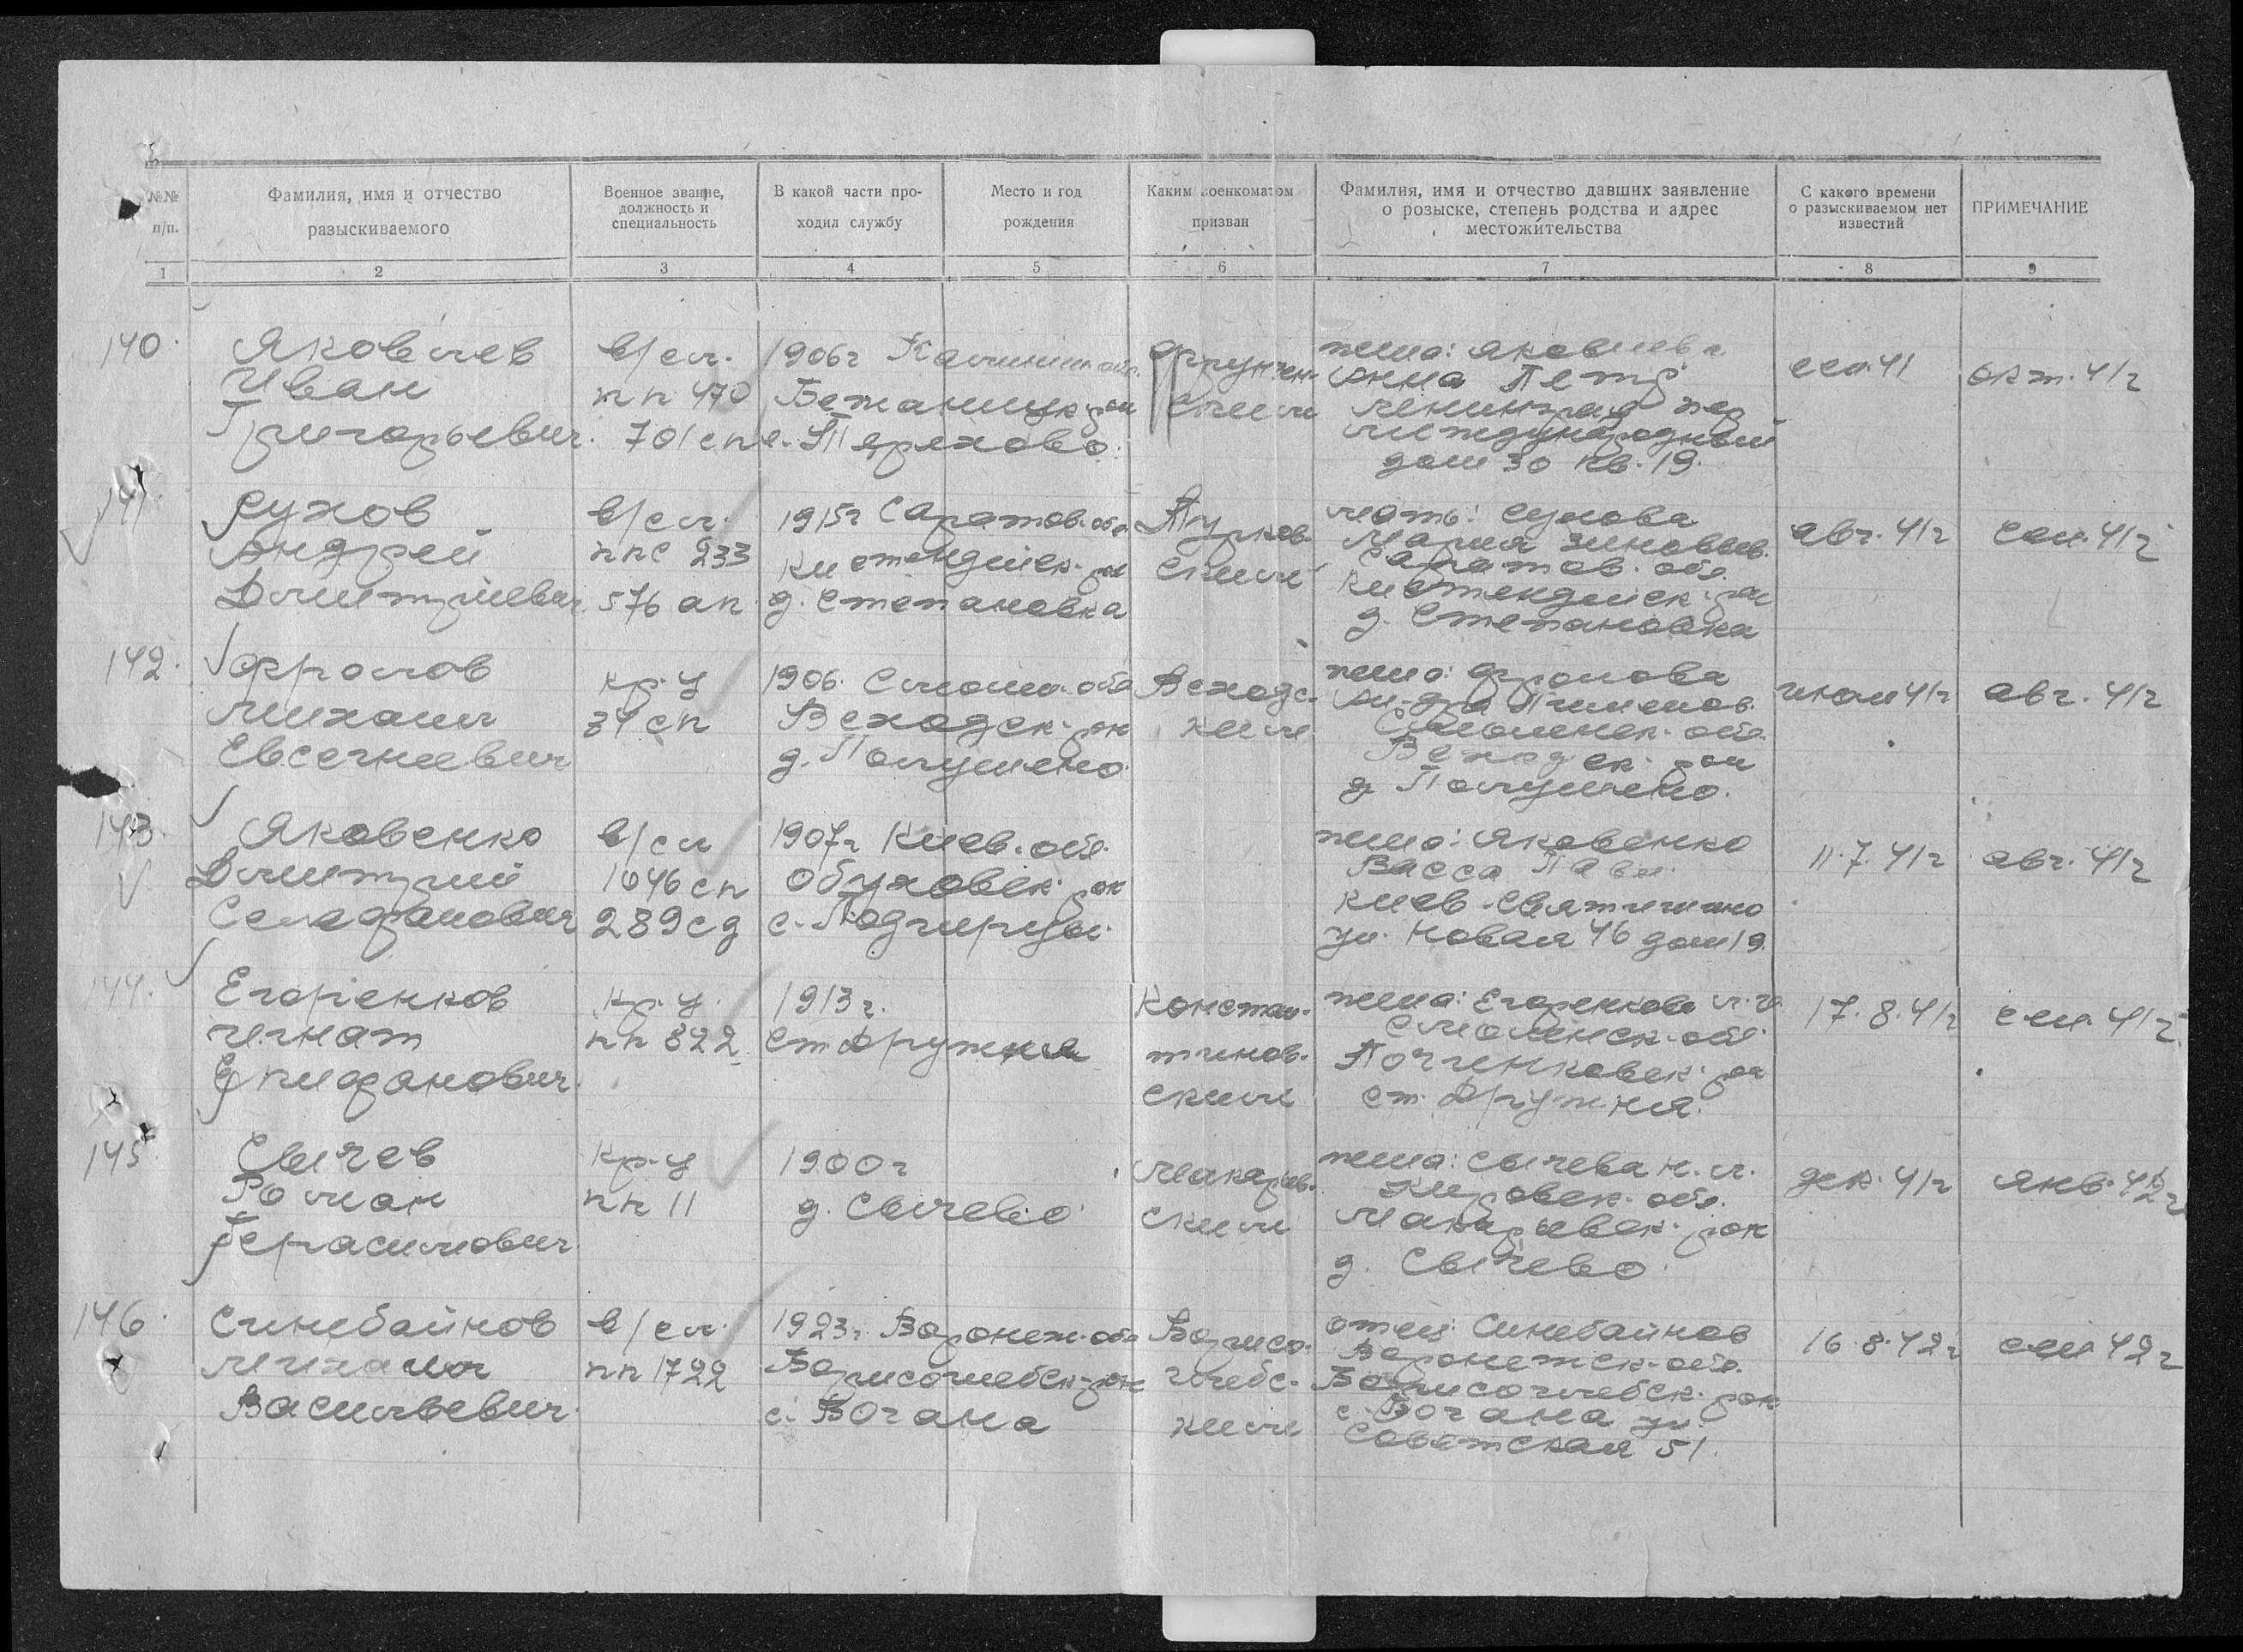 №№ п/п.
Фамилия, имя и отчество разыскиваемого
Военное звание, должность и специальность
В какой части проходил службу
Место и год рождения
Каким военкоматом призван
Фамилия, имя и отчество давших заявление о розыске, степень родства и адрес местожительства
С какого времени о разыскиваемом нет известий
ПРИМЕЧАНИЕ
1 2 3 4 5 6 7 8 9
140.
Яковлев
Иван
Григорьевич.
в/сл.
пп 470
701 сп
1906г Калинин обл.
Бежаницк рн
Терехово.
Фрунзен-
ским
жена: Яковлева
Анна Петр
Ленинград пер
Международный
дом 30 кв. 19.
сен 41
окт. 41г
141.
Сухов
Андрей
Дмитриевич
в/сл.
ппс 233
576 ап
1915г Саратов. обл.
Кистендейск. рн
д. Степановка
Турков-
ским
мать: Сухова
Мария Зиновьев.
Саратов. обл.
Кистендейск. рн
д. Степановка
авг. 41г
сен. 41г
142.
Фролов
Михаил
Евсегнеевич
кр-ц
31 сп
1906. Смолен. обл
Всходск. рн
д. Полушено
Всходс-
ким
жена: Фролова
Пименов.
Смоленск. обл.
Всходск. рн
д Полушено.
июль 41г
авг. 41г
143.
Яковенко
Дмитрий
Селафанович
в/сл
1046 сп
289 сд
1907г Киев. обл.
Обуховск. рн
с. Подгирцы.
жена: Яковенко
Васса Павл.
Киев - Святошино
ул. Новая 46 дом 19.
11.7.41г
авг. 41г
144.
Егоренков
Игнат
Епифанович.
кр-ц.
пп 822
1913г.
ст Дружная
Констан-
тинов-
ским
жена: Егоренкова
Смоленск. обл.
Починковск. рн
ст. Дружня.
17.8.41г
сен. 41г
145.
Сычев
Роман
Герасимович
кр-ц
пп 11
1900г
д. Сычево
Макарьев-
ским
жена: Сычева Н. М.
Кировск. обл.
Макарьевск. рн
д. Сычево
дек. 41г
янв. 42г
146.
Синебайнов
Михаил
Васильевич.
в/сл.
пп 1722
1923г. Воронеж. обл
Борисоглебск. рн
с. Богана
Борисо-
глебс-
ким
отец: Синебайнов
Воронежск. обл.
Борисоглебск. рн
с. Богана ул.
Советская 51.
16.8.42г
сен 42г